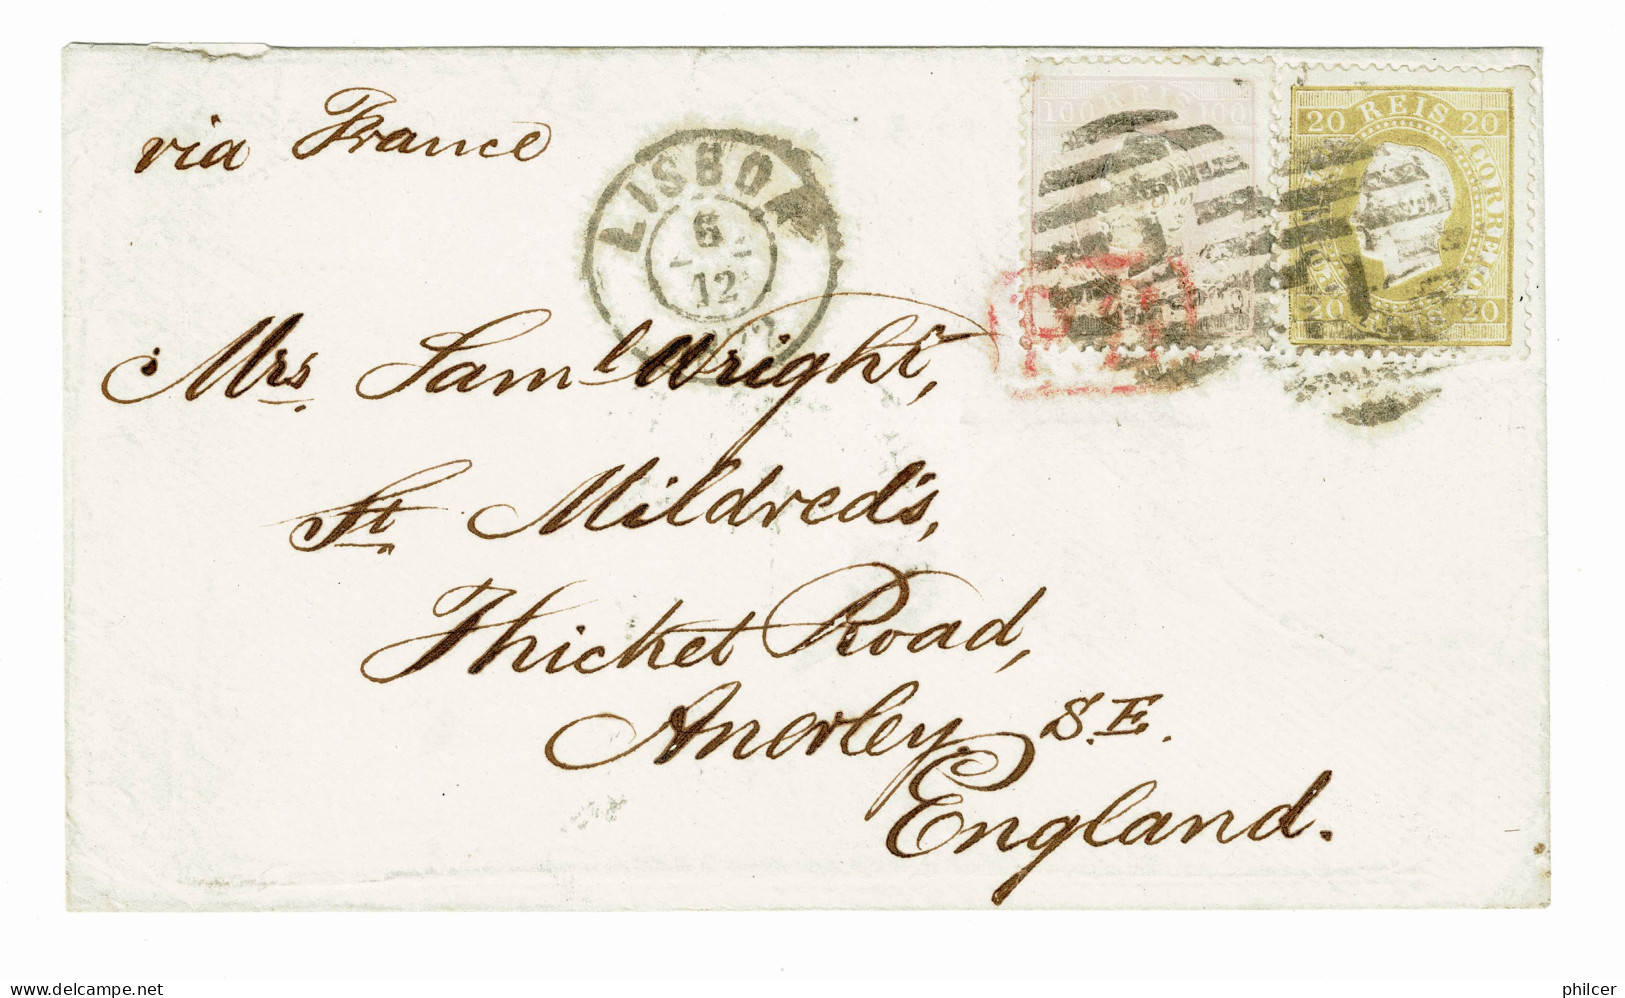 via France
LISBOA
6
12
100 REIS 100
20 REIS 20
CORREIO
20 20
1
1
Mrs. Saml. Wright,
St. Mildred's,
Thicket Road,
Anerley S.E.
England.
delcampe.net
philcer